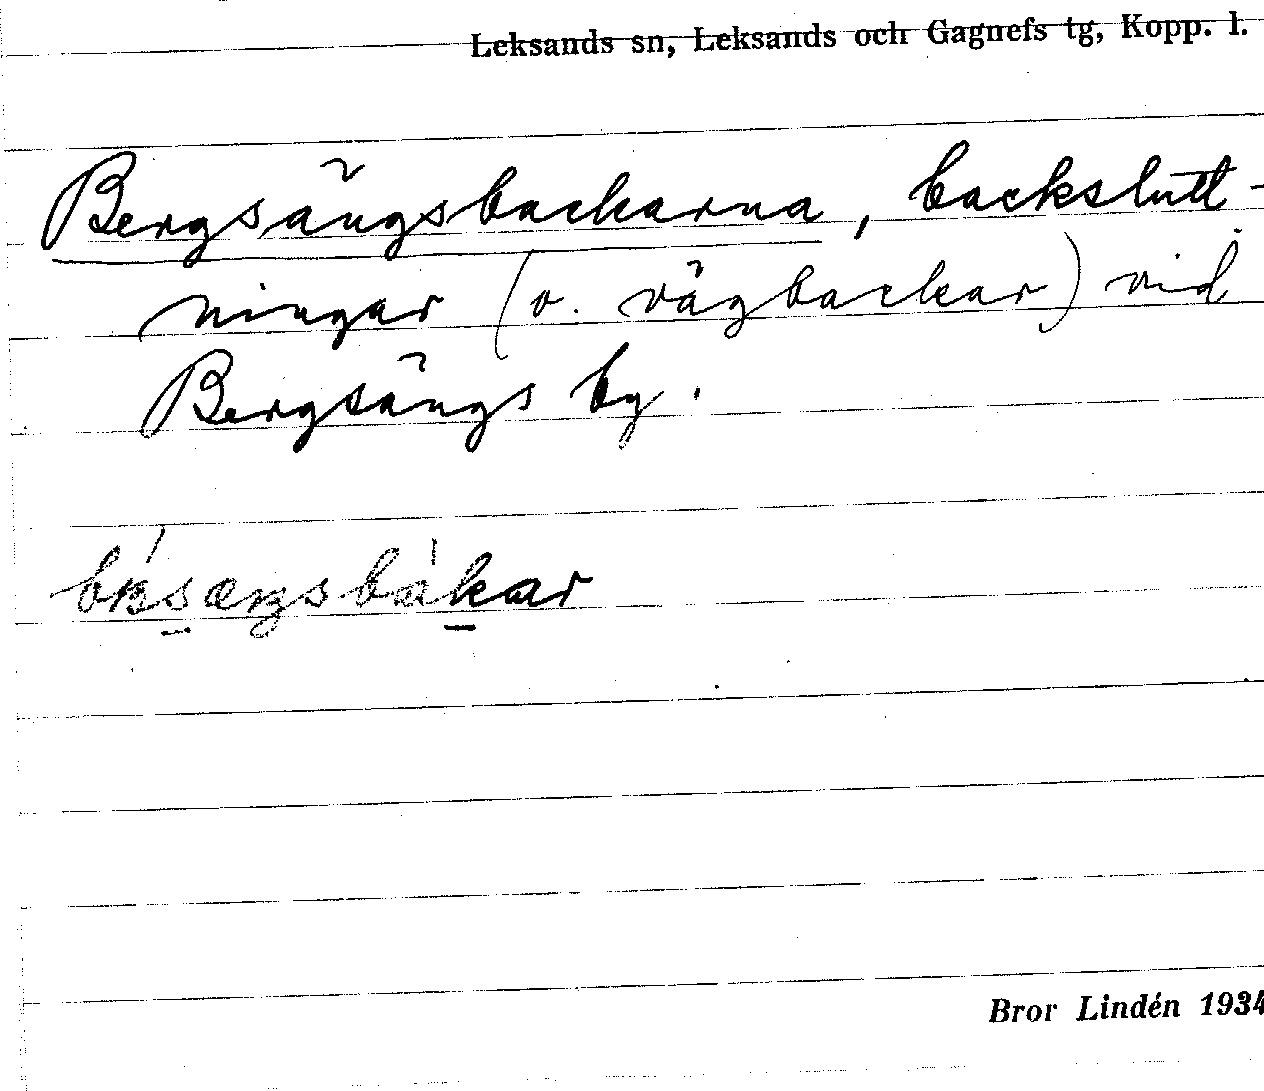 Leksands sn, Leksands och Gagnefs tg, Kopp. l.
Bergsängsbackarna, backslutt-
ningar (o. vägbackar) vid
Bergsängs by.
Bror Lindén 1934